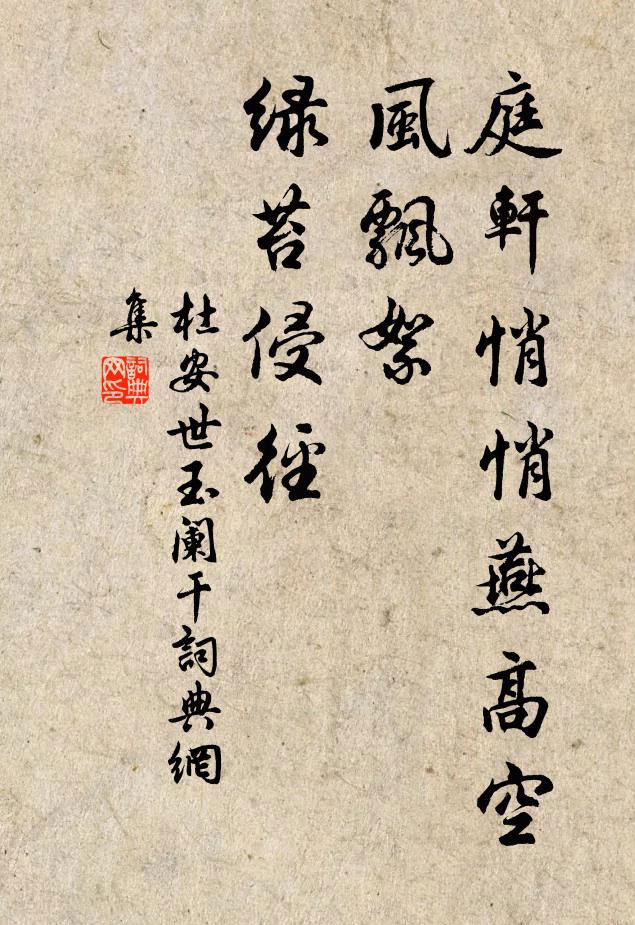 庭軒悄悄燕高空
風飄絮
緑苔侵徑
杜安世玉闌干詞典網
集
詞典
网印